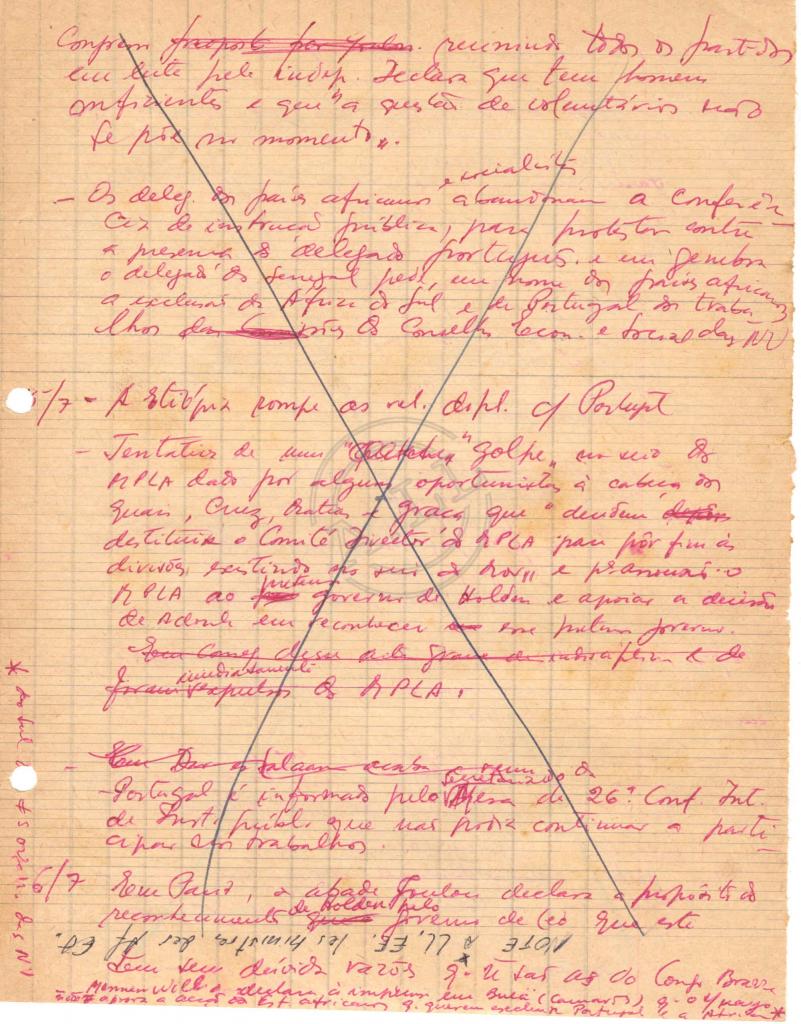 Congrem proposto por Youlou. reunindo todos os partidos
em luta pela indep. Declara que tem homens
suficientes e que "a questão de voluntários não
se põe no momento".
e socialistas
- Os deleg. dos países africanos abandonam a Conferên-
cia de instrução pública, para protestar contra
a presença do delegado português. e em Genebra
o delegado do Senegal pede, em nome dos países africanos
a exclusão da África do Sul e de Portugal dos traba-
lhos das Comissões do Conselho Econ. e Social das NU
5/7 - A Etiópia rompe as rel. dipl. c/ Portugal
- Tentativa de um "golpe" no seio do
MPLA dado por alguns oportunistas à cabeça dos
quais, Cruz, Matias e Graça que "decidem
destituir o Comité Director do MPLA para pôr fim às
divisões existindo no seio do Mov" e
MPLA ao governo de Holden e apoiar a decisão
de Adoula em reconhecer esse governo.
imediatamente
Foram expulsos do MPLA.
- Em Dar es Salaam acaba a reun. do
secretariado
- Portugal é informado pelo da 26ª Conf. Int.
de Inst. públ. que não podia continuar a parti-
cipar nos trabalhos.
6/7 Em Paris, o abade Youlou declara a propósito do
de Holden pelo
reconhecimento governo de Leo que este
NOTE A LL. EE. les ministres des Af. Et.
Tem sem dúvida razões q. ñ são as do Congo Brazza
Mennen Williams declara à imprensa em Buéa (Camarões) q. o
aprova a acção do Est. africanos q. querem excluir Portugal e a África *
* do Sul